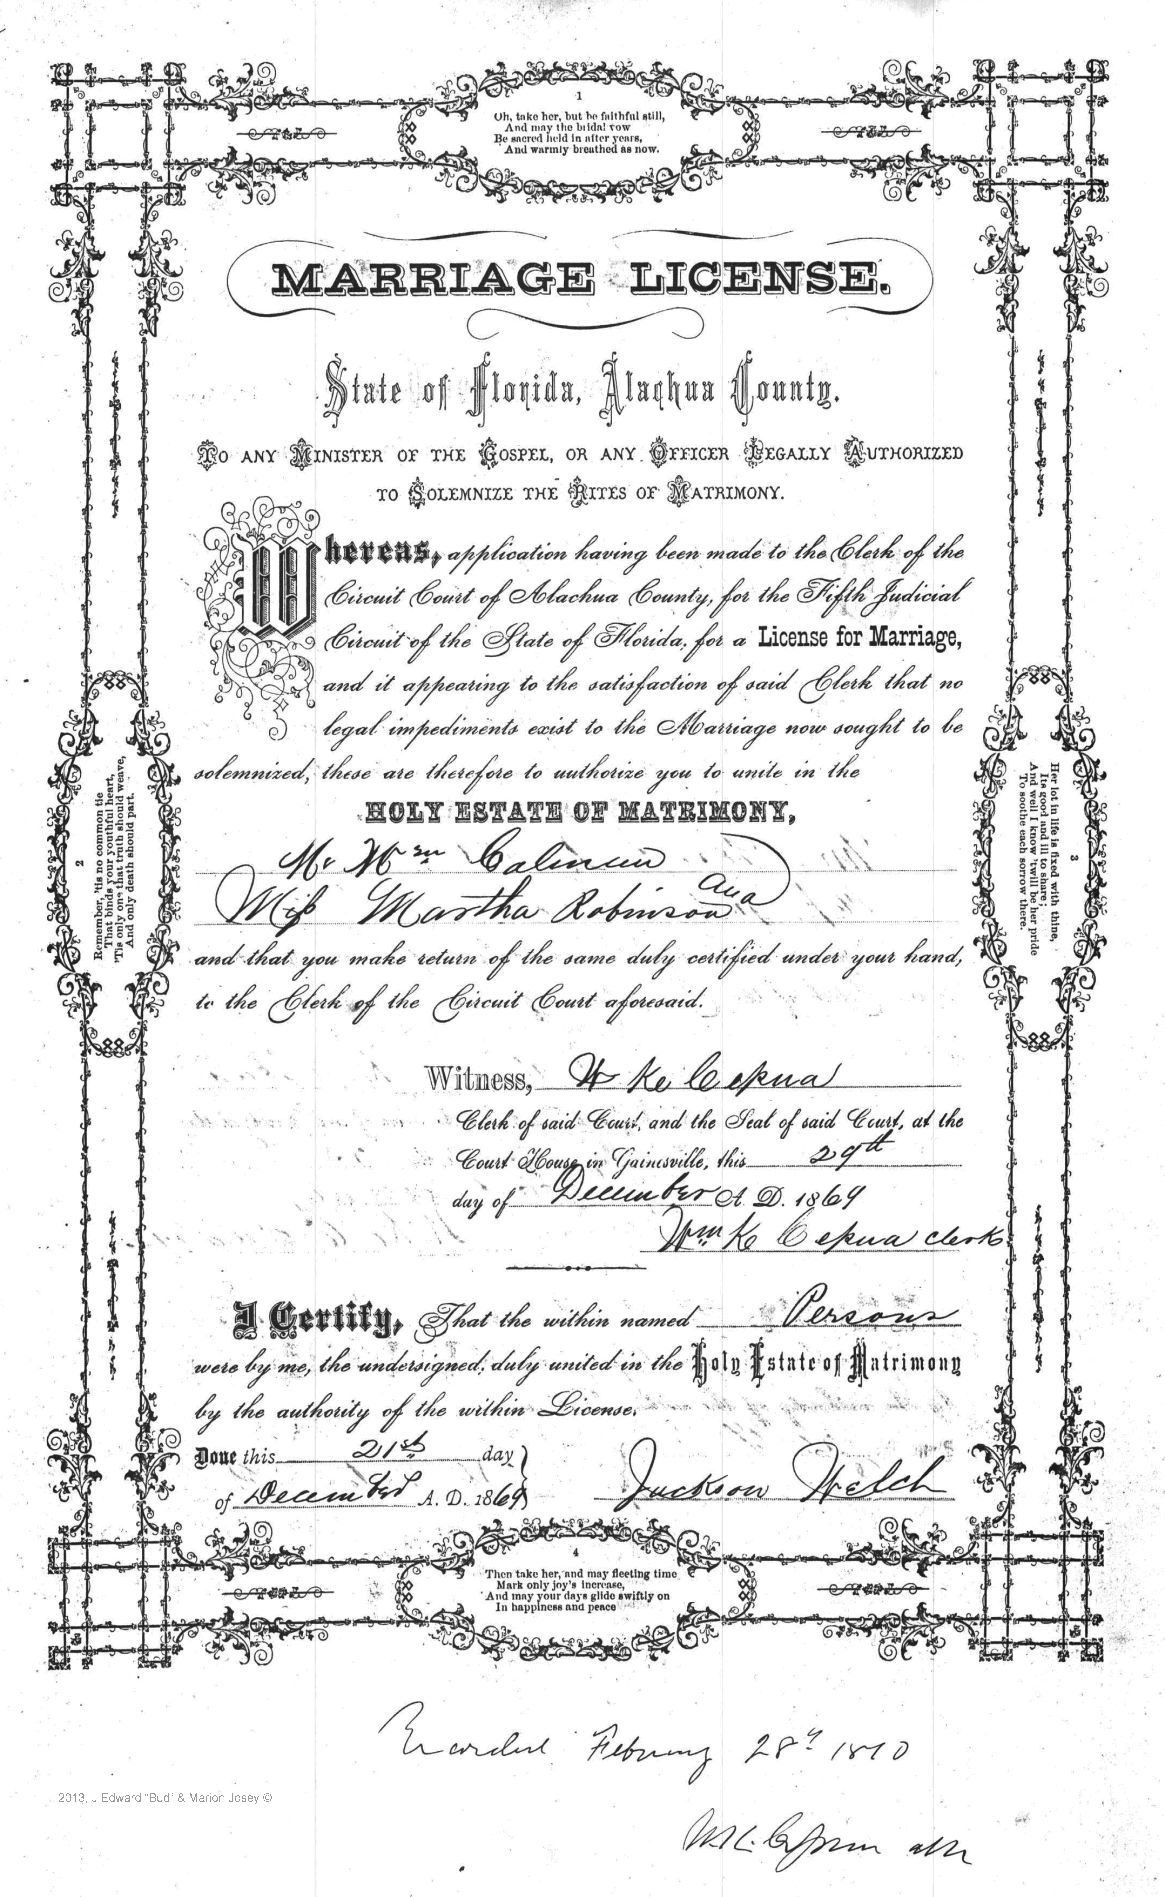 1
Oh, take her, but be faithful still,
And may the bridal vow
Be sacred held in after years,
And warmly breathed as now.
MARRIAGE LICENSE.
State of Florida, Alachua County.
TO ANY MINISTER OF THE GOSPEL, OR ANY OFFICER LEGALLY AUTHORIZED
TO SOLEMNIZE THE RITES OF MATRIMONY.
Whereas, application having been made to the Clerk of the
Circuit Court of Alachua County, for the Fifth Judicial
Circuit of the State of Florida, for a License for Marriage,
and it appearing to the satisfaction of said Clerk that no
legal impediments exist to the Marriage now sought to be
solemnized, these are therefore to authorize you to unite in the
HOLY ESTATE OF MATRIMONY,
Mr Wm Coleman
and
Miss Martha Robinson
and that you make return of the same duly certified under your hand,
to the Clerk of the Circuit Court aforesaid.
Witness, W K Cessna
Clerk of said Court, and the Seal of said Court, at the
Court House in Gainesville, this 29th
day of December A. D. 1869
Wm K Cessna clerk
I Certify, That the within named Persons
were by me, the undersigned, duly united in the Holy Estate of Matrimony
by the authority of the within License.
Done this 21st day
of December A. D. 1869
Jackson Welch
2
Remember, 'tis no common tie
That binds your youthful heart,
'Tis only one that truth should weave,
And only death should part.
3
Her lot in life is fixed with thine,
Its good and ill to share;
And well I know 'twill be her pride
To soothe each sorrow there.
4
Then take her, and may fleeting time
Mark only joy's increase,
And may your days glide swiftly on
In happiness and peace
Recorded February 28th 1870
2013, J Edward "Bud" & Marion Josey ©
W K Cessna clk